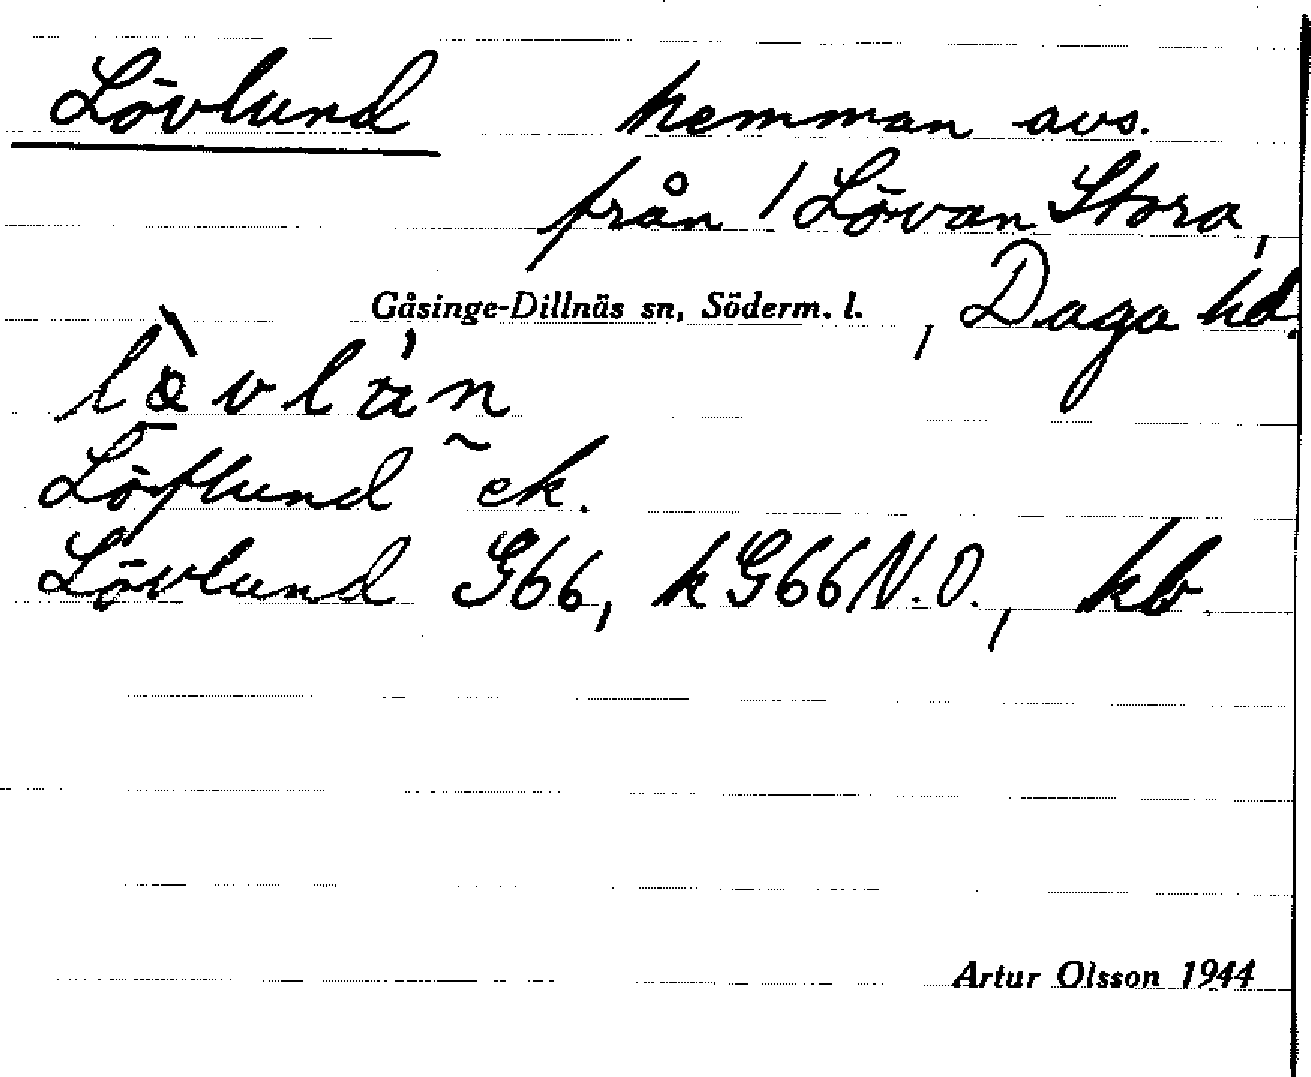 Lövlund hemman avs.
från /Lövan Stora,
Gåsinge-Dillnäs sn, Söderm. l. , Daga hd.
Löflund ek.
Lövlund G66, kG66N.O., kb.
Artur Olsson 1944